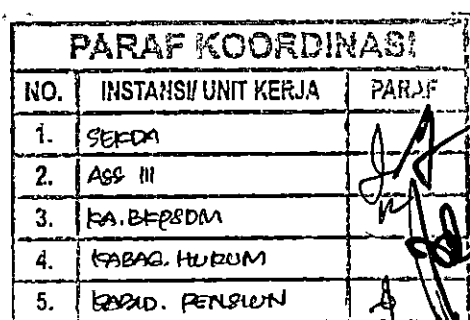 PARAF KOORDINASI
NO. INSTANSI/ UNIT KERJA PARAF
1. SEKDA
2. ASS III
3. KA. BKPSDM
4. KABAG. HUKUM
5. KABID. PENSIUN